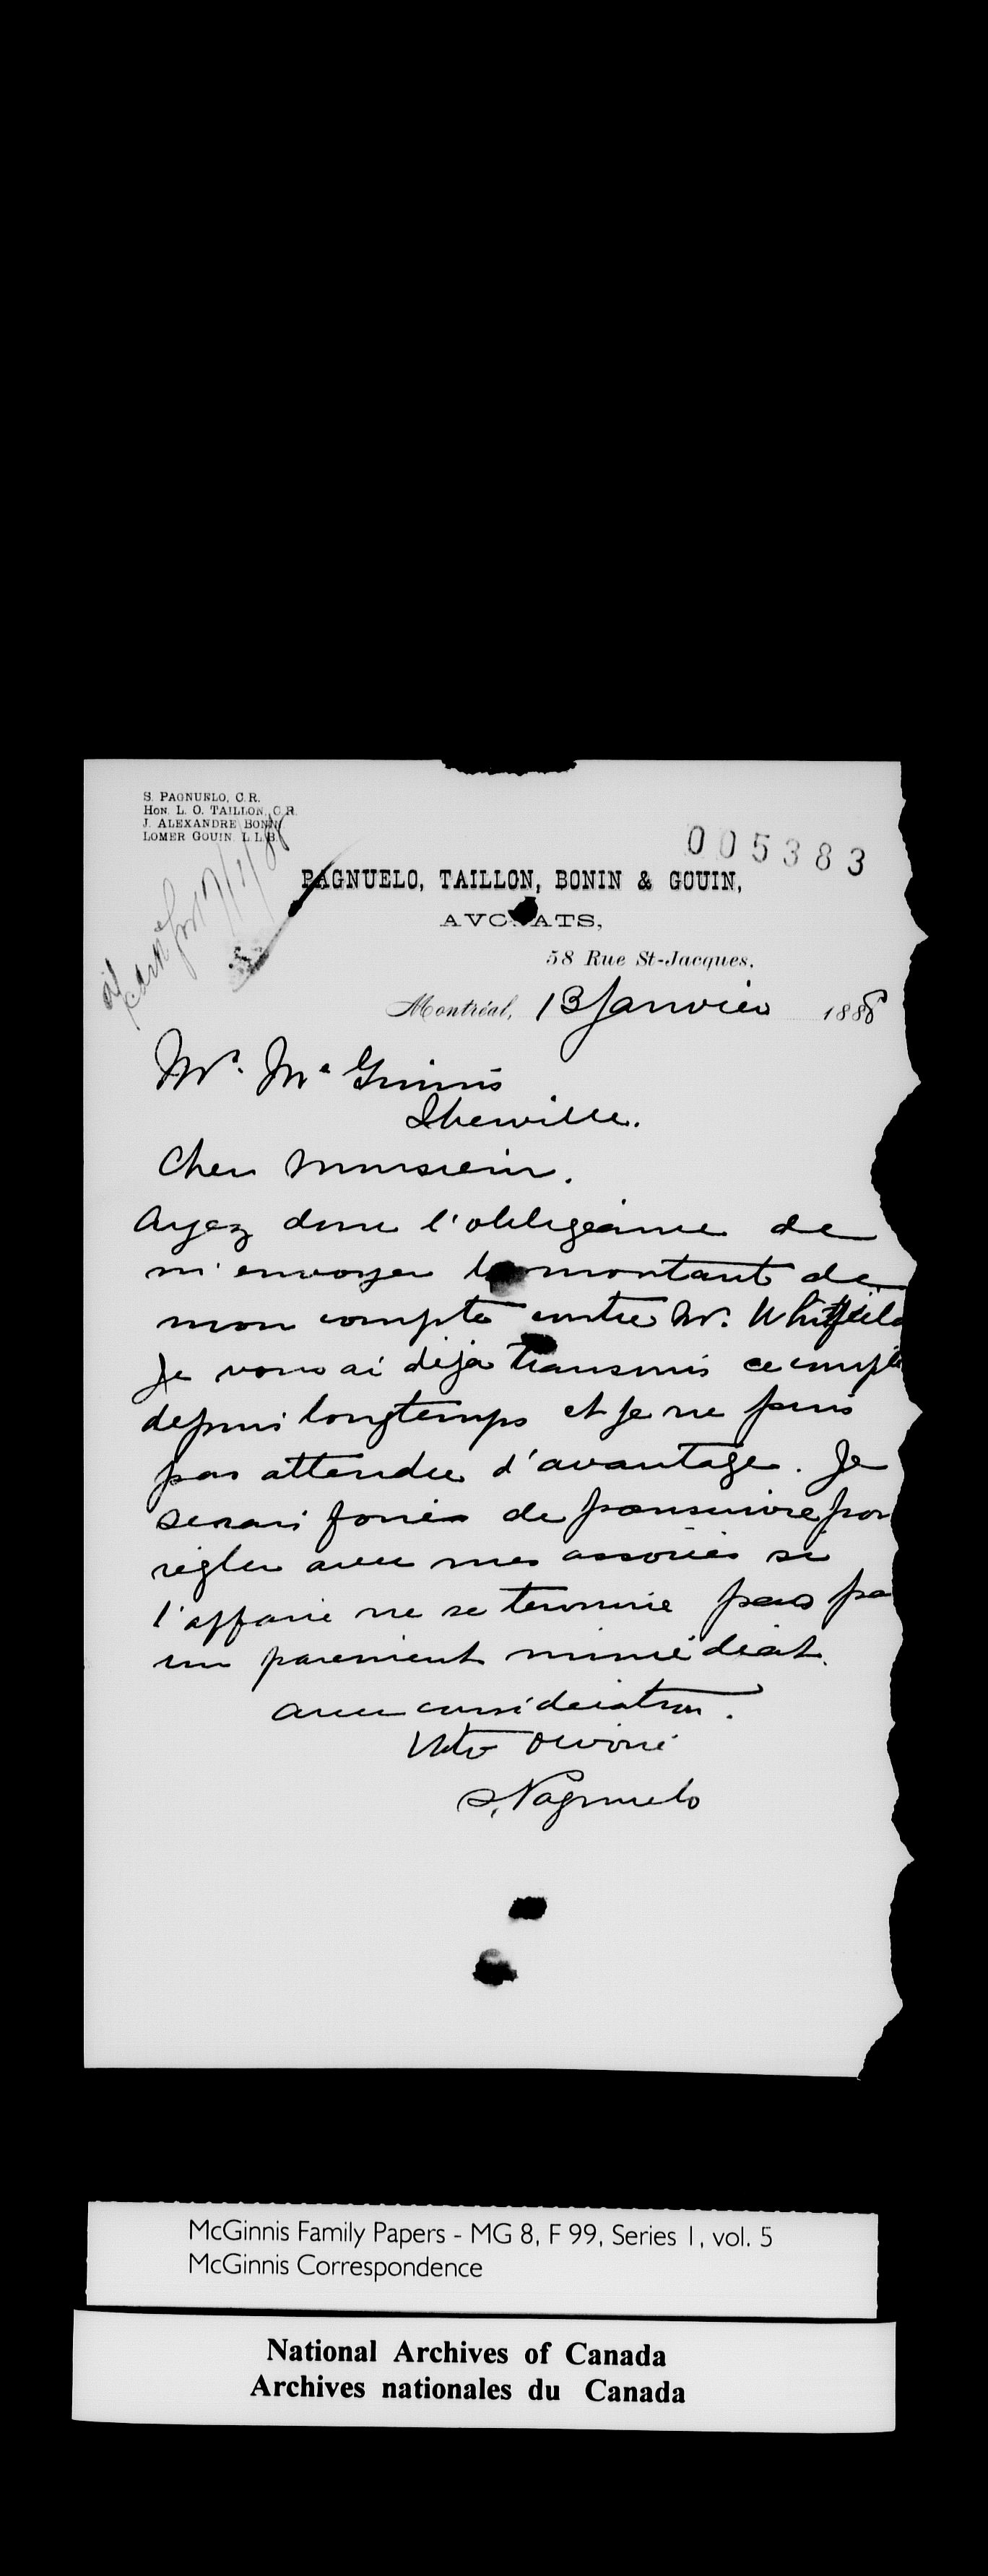 S. PAGNUELO, C.R.
HON. L. O. TAILLON, C.R.
J. ALEXANDRE BONIN
LOMER GOUIN. L L B.
005383
PAGNUELO, TAILLON, BONIN & GOUIN,
AVOCATS,
58 Rue St-Jacques.
Montréal, 13 Janvier 1888
Mr. Mc Ginnis
Iberville.
Cher Monsieur.
Ayez donc l'obligeance de
m'envoyer le montant de
mon compte contre Mr. Whitfield
Je vous ai déjà transmis ce compte
depuis longtemps et je ne puis
pas attendre d'avantage. Je
serai forcé de poursuivre pour
régler avec mes associés si
l'affaire ne se termine pas pa
un paiement immédiat.
avec considération.
Votre dévoué
S. Pagnuelo
McGinnis Family Papers - MG 8, F 99, Series 1, vol. 5
McGinnis Correspondence
National Archives of Canada
Archives nationales du Canada